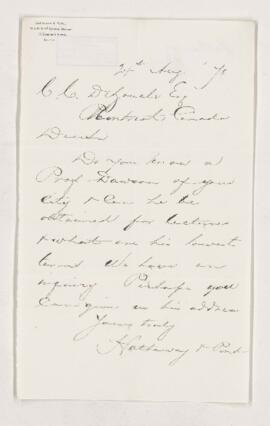 24th Aug '78
C. C. DeZouche Esq
Montreal Canada
Dear Sir
Do you know a
Prof Dawson of your
City & Can he be
obtained for lectures
& what are his lowest
terms We have an
inquiry Perhaps you
can give us his address
Yours truly
Hathaway & Pond